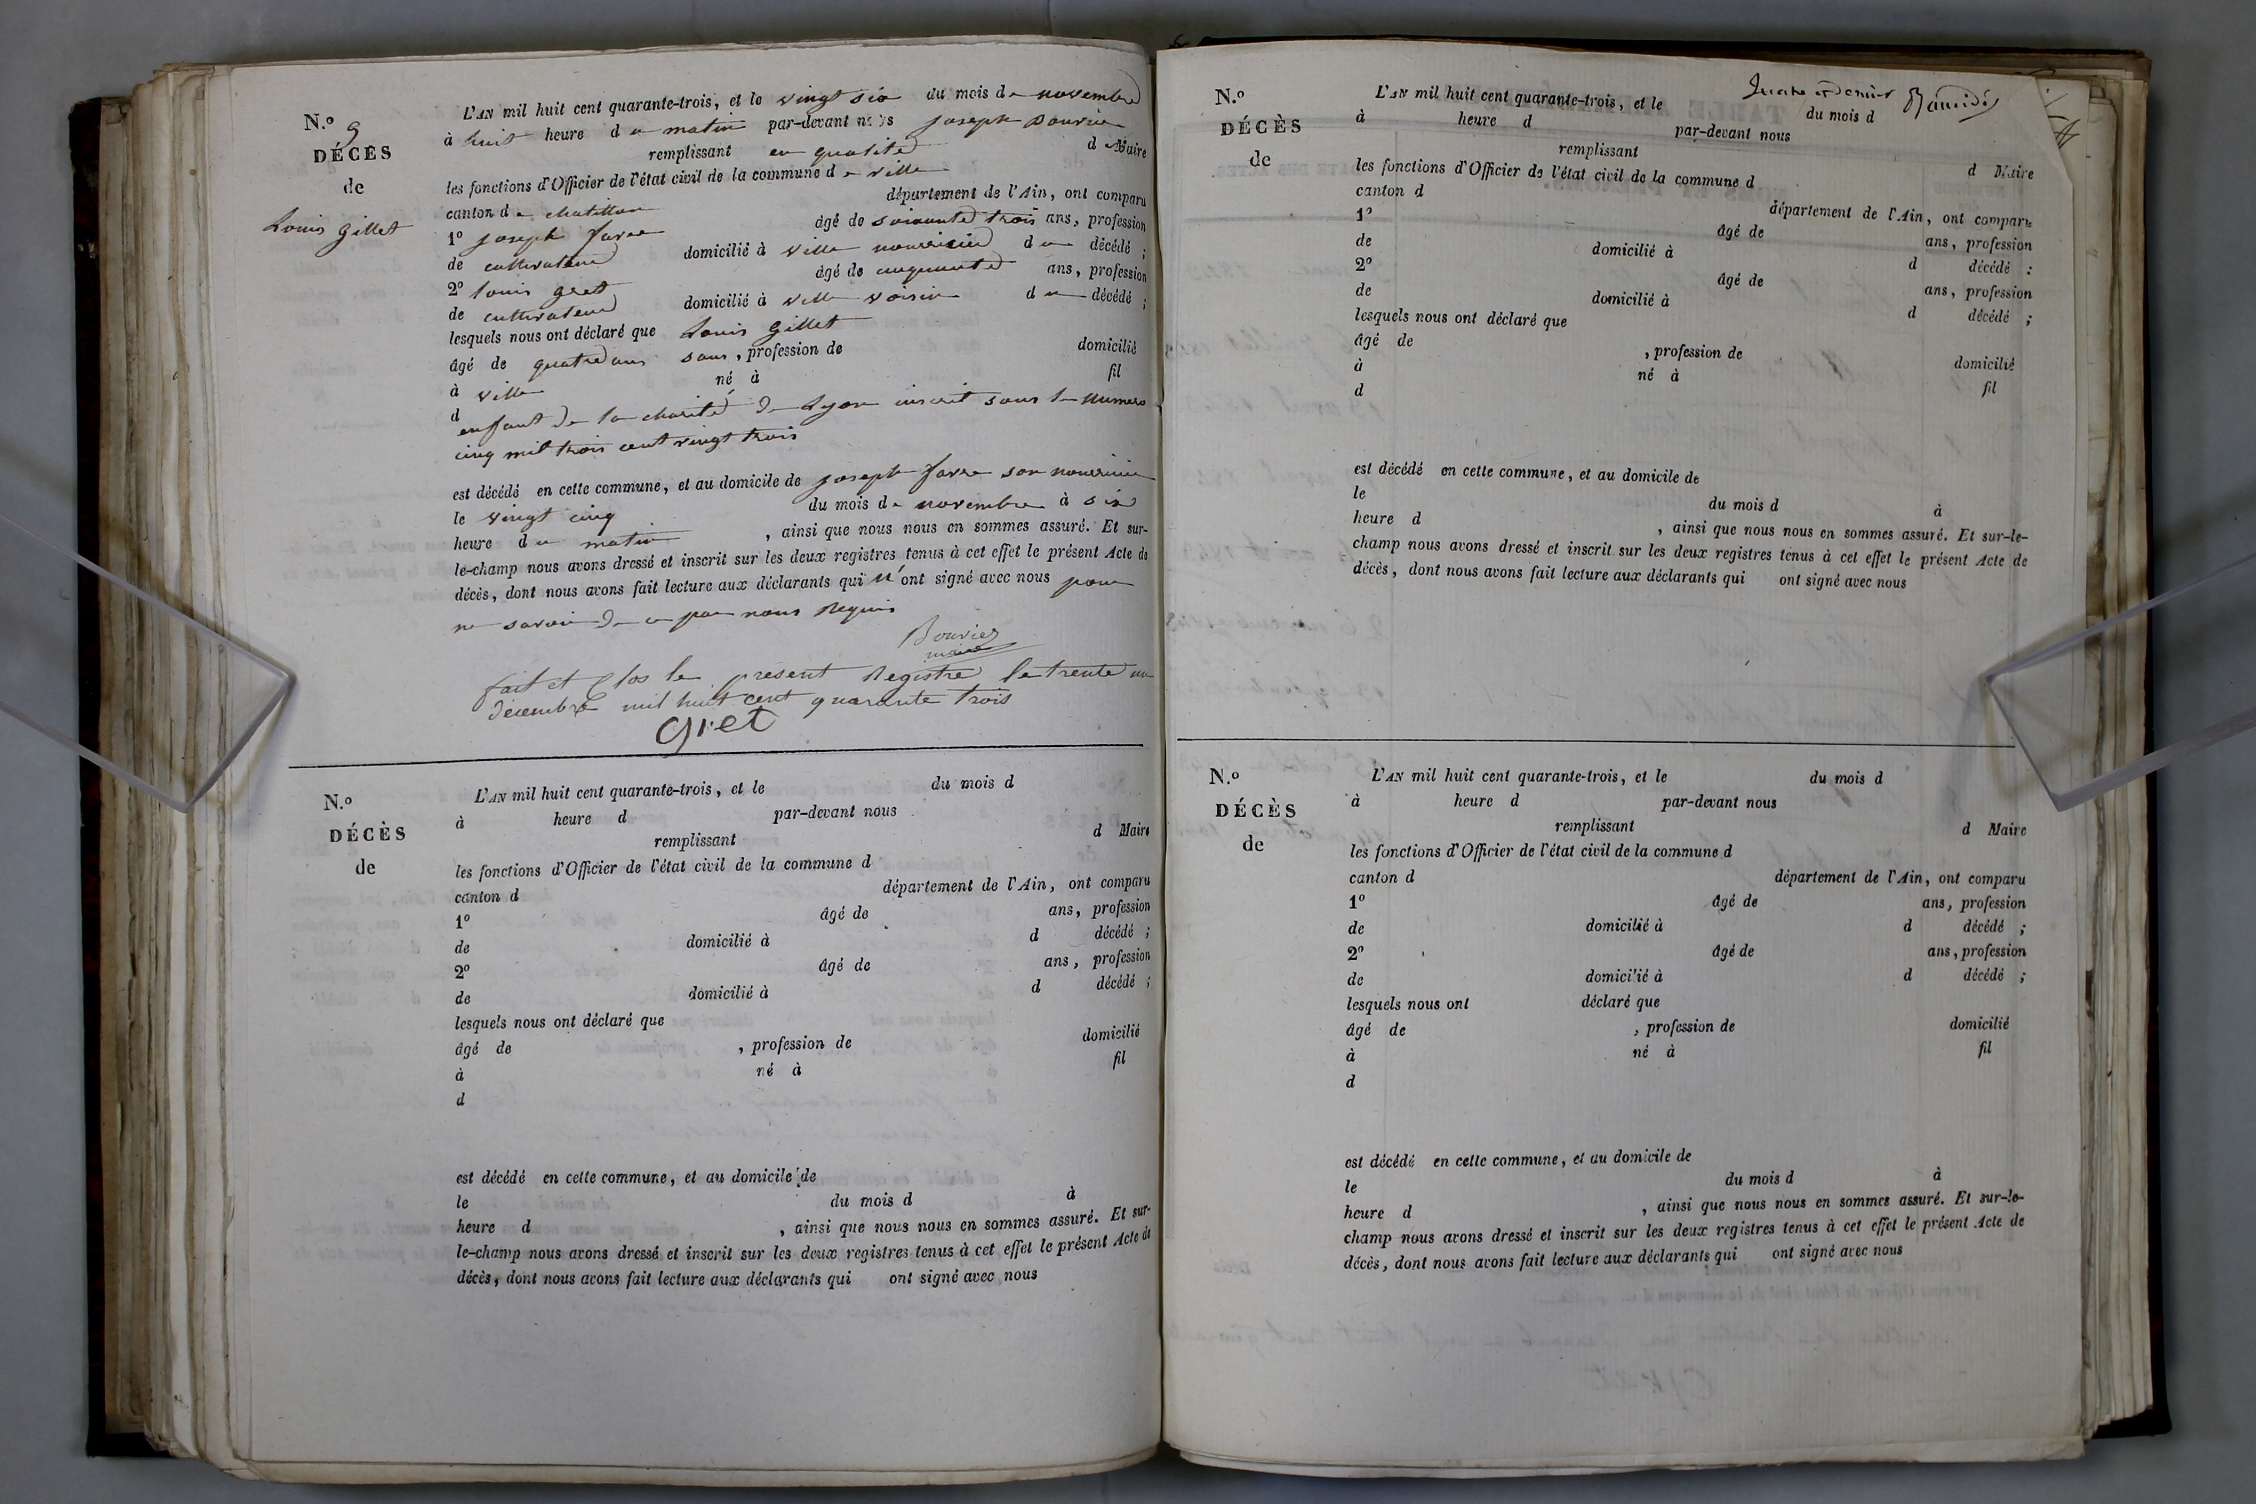 N.º 9
DÉCÈS
de
Louis Gillet
L'AN mil huit cent quarante-trois, et le vingt six du mois de novembre
à huit heure du matin par-devant nous joseph Bouvier
remplissant en qualité de Maire
les fonctions d'Officier de l'état civil de la commune de ville
canton de chatillon département de l'Ain, ont comparu
1º joseph favre âgé de soixante trois ans, profession
de cultivateur domicilié à ville nourricier du décédé ;
2º louis gret âgé de cinquante ans, profession
de cultivateur domicilié à ville voisin du décédé ;
lesquels nous ont déclaré que Louis Gillet
âgé de quatre ans sans, profession de domicilié
à ville né à fil
d
enfant de la charité de Lyon inscrit sous le numero
cinq mil trois cent vingt trois
est décédé en cette commune, et au domicile de joseph favre son nourricier
le vingt cinq du mois de novembre à six
heure du matin , ainsi que nous nous en sommes assuré. Et sur-
le-champ nous avons dressé et inscrit sur les deux registres tenus à cet effet le présent Acte de
décès, dont nous avons fait lecture aux déclarants qui n'ont signé avec nous pour
ne savoir de ce par nous Requis
Bouvier
maire
fait et Clos le present Registre le trente un
décembre mil huit cent quarante trois
Gret
N.º
DÉCÈS
de
L'AN mil huit cent quarante-trois, et le du mois d
à heure d par-devant nous
remplissant d Maire
les fonctions d'Officier de l'état civil de la commune d
canton d département de l'Ain, ont comparu
1º âgé de ans, profession
de domicilié à d décédé ;
2º âgé de ans, profession
de domicilié à d décédé ;
lesquels nous ont déclaré que
âgé de , profession de domicilié
à né à fil
d
est décédé en cette commune, et au domicile de
le du mois d à
heure d , ainsi que nous nous en sommes assuré. Et sur-
le-champ nous avons dressé et inscrit sur les deux registres tenus à cet effet le présent Acte de
décès, dont nous avons fait lecture aux déclarants qui ont signé avec nous
N.º
DÉCÈS
de
L'AN mil huit cent quarante-trois, et le du mois d
à heure d par-devant nous
remplissant d Maire
les fonctions d'Officier de l'état civil de la commune d
canton d département de l'Ain, ont comparu
1º âgé de ans, profession
de domicilié à d décédé ;
2º âgé de ans, profession
de domicilié à d décédé ;
lesquels nous ont déclaré que
âgé de , profession de domicilié
à né à fil
d
est décédé en cette commune, et au domicile de
le du mois d à
heure d , ainsi que nous nous en sommes assuré. Et sur-le-
champ nous avons dressé et inscrit sur les deux registres tenus à cet effet le présent Acte de
décès, dont nous avons fait lecture aux déclarants qui ont signé avec nous
N.º
DÉCÈS
de
L'AN mil huit cent quarante-trois, et le du mois d
à heure d par-devant nous
remplissant d Maire
les fonctions d'Officier de l'état civil de la commune d
canton d département de l'Ain, ont comparu
1º âgé de ans, profession
de domicilié à d décédé ;
2º âgé de ans, profession
de domicilié à d décédé ;
lesquels nous ont déclaré que
âgé de , profession de domicilié
à né à fil
d
est décédé en cette commune, et au domicile de
le du mois d à
heure d , ainsi que nous nous en sommes assuré. Et sur-le-
champ nous avons dressé et inscrit sur les deux registres tenus à cet effet le présent Acte de
décès, dont nous avons fait lecture aux déclarants qui ont signé avec nous